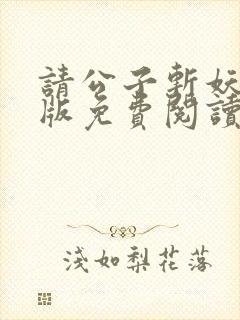 請公子斬妖
版免費閱讀
淺如梨花落